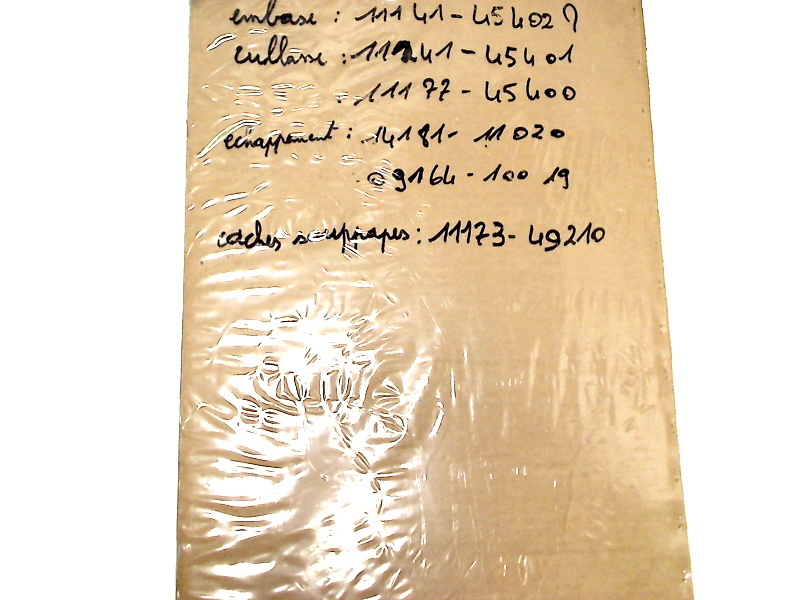 embase : 11141-45402 ?
cullasse : 11241-45401
: 11177-45400
échappement : 14181-11020
09164-10019
caches soupapes : 11173-49210